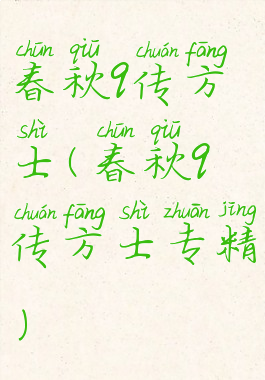 chūn qiū chuán fāng
春秋9传方
shì chūn qiū
士(春秋9
chuán fāng shì zhuān jīng
传方士专精
)